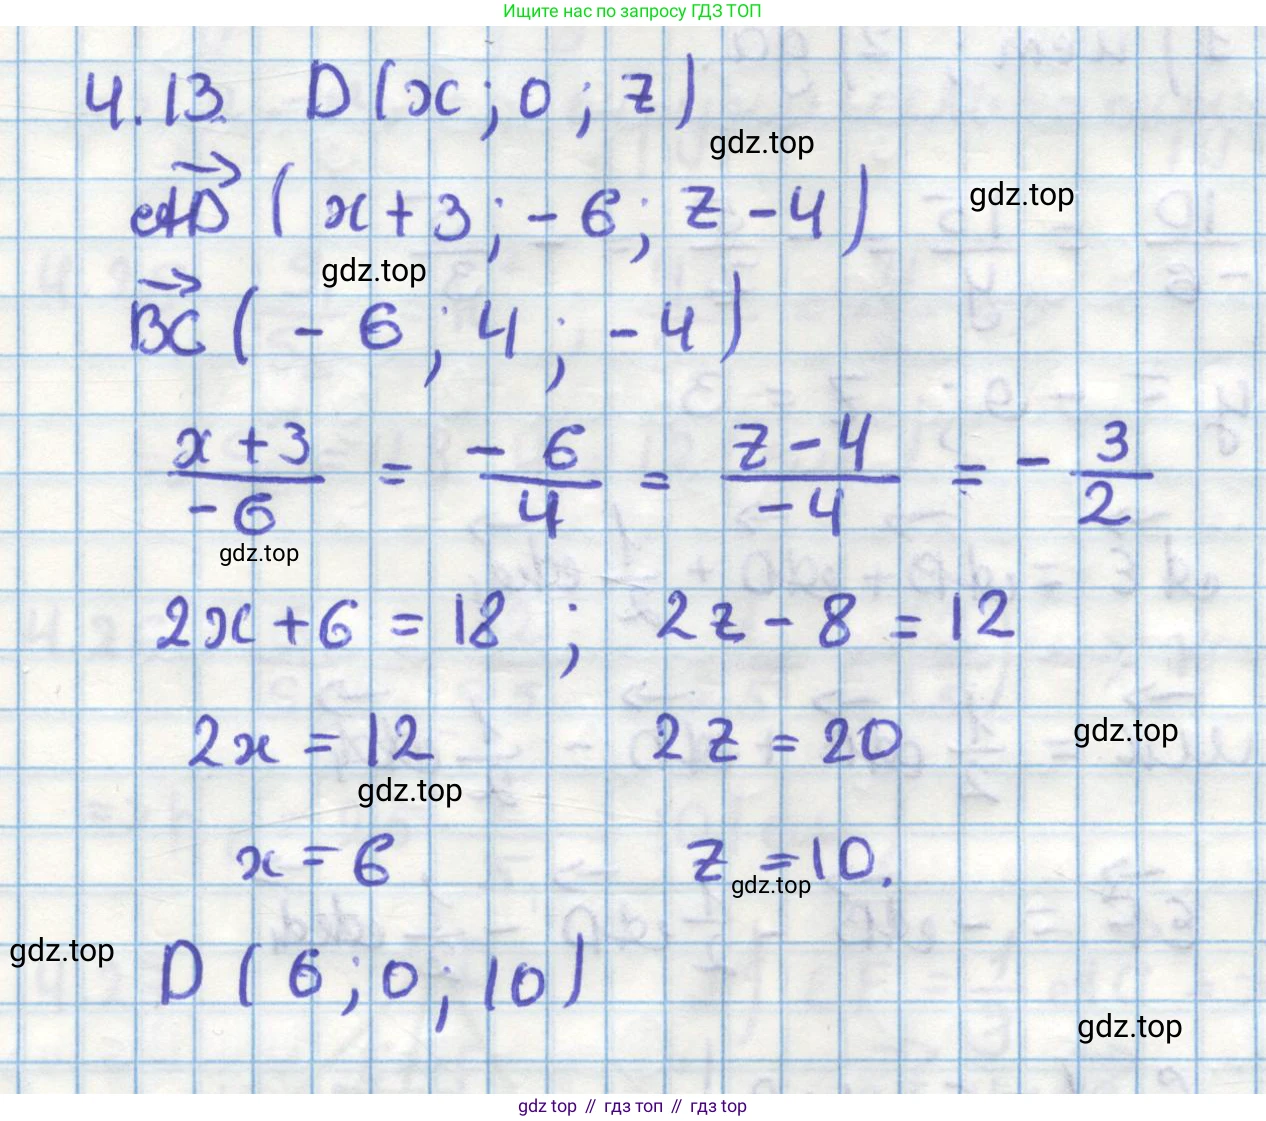 Ищите нас по запросу ГДЗ ТОП
4.13. D(x; 0; z)
gdz.top
AD→ (x+3; -6; z-4)
gdz.top
gdz.top
BC→ (-6; 4; -4)
(x+3)/(-6) = (-6)/4 = (z-4)/(-4) = -3/2
gdz.top
2x+6 = 18; 2z-8 = 12
2x = 12 2z = 20
gdz.top
gdz.top
x = 6 z = 10.
gdz.top
gdz.top
D(6; 0; 10)
gdz.top
gdz top // гдз топ // gdz top